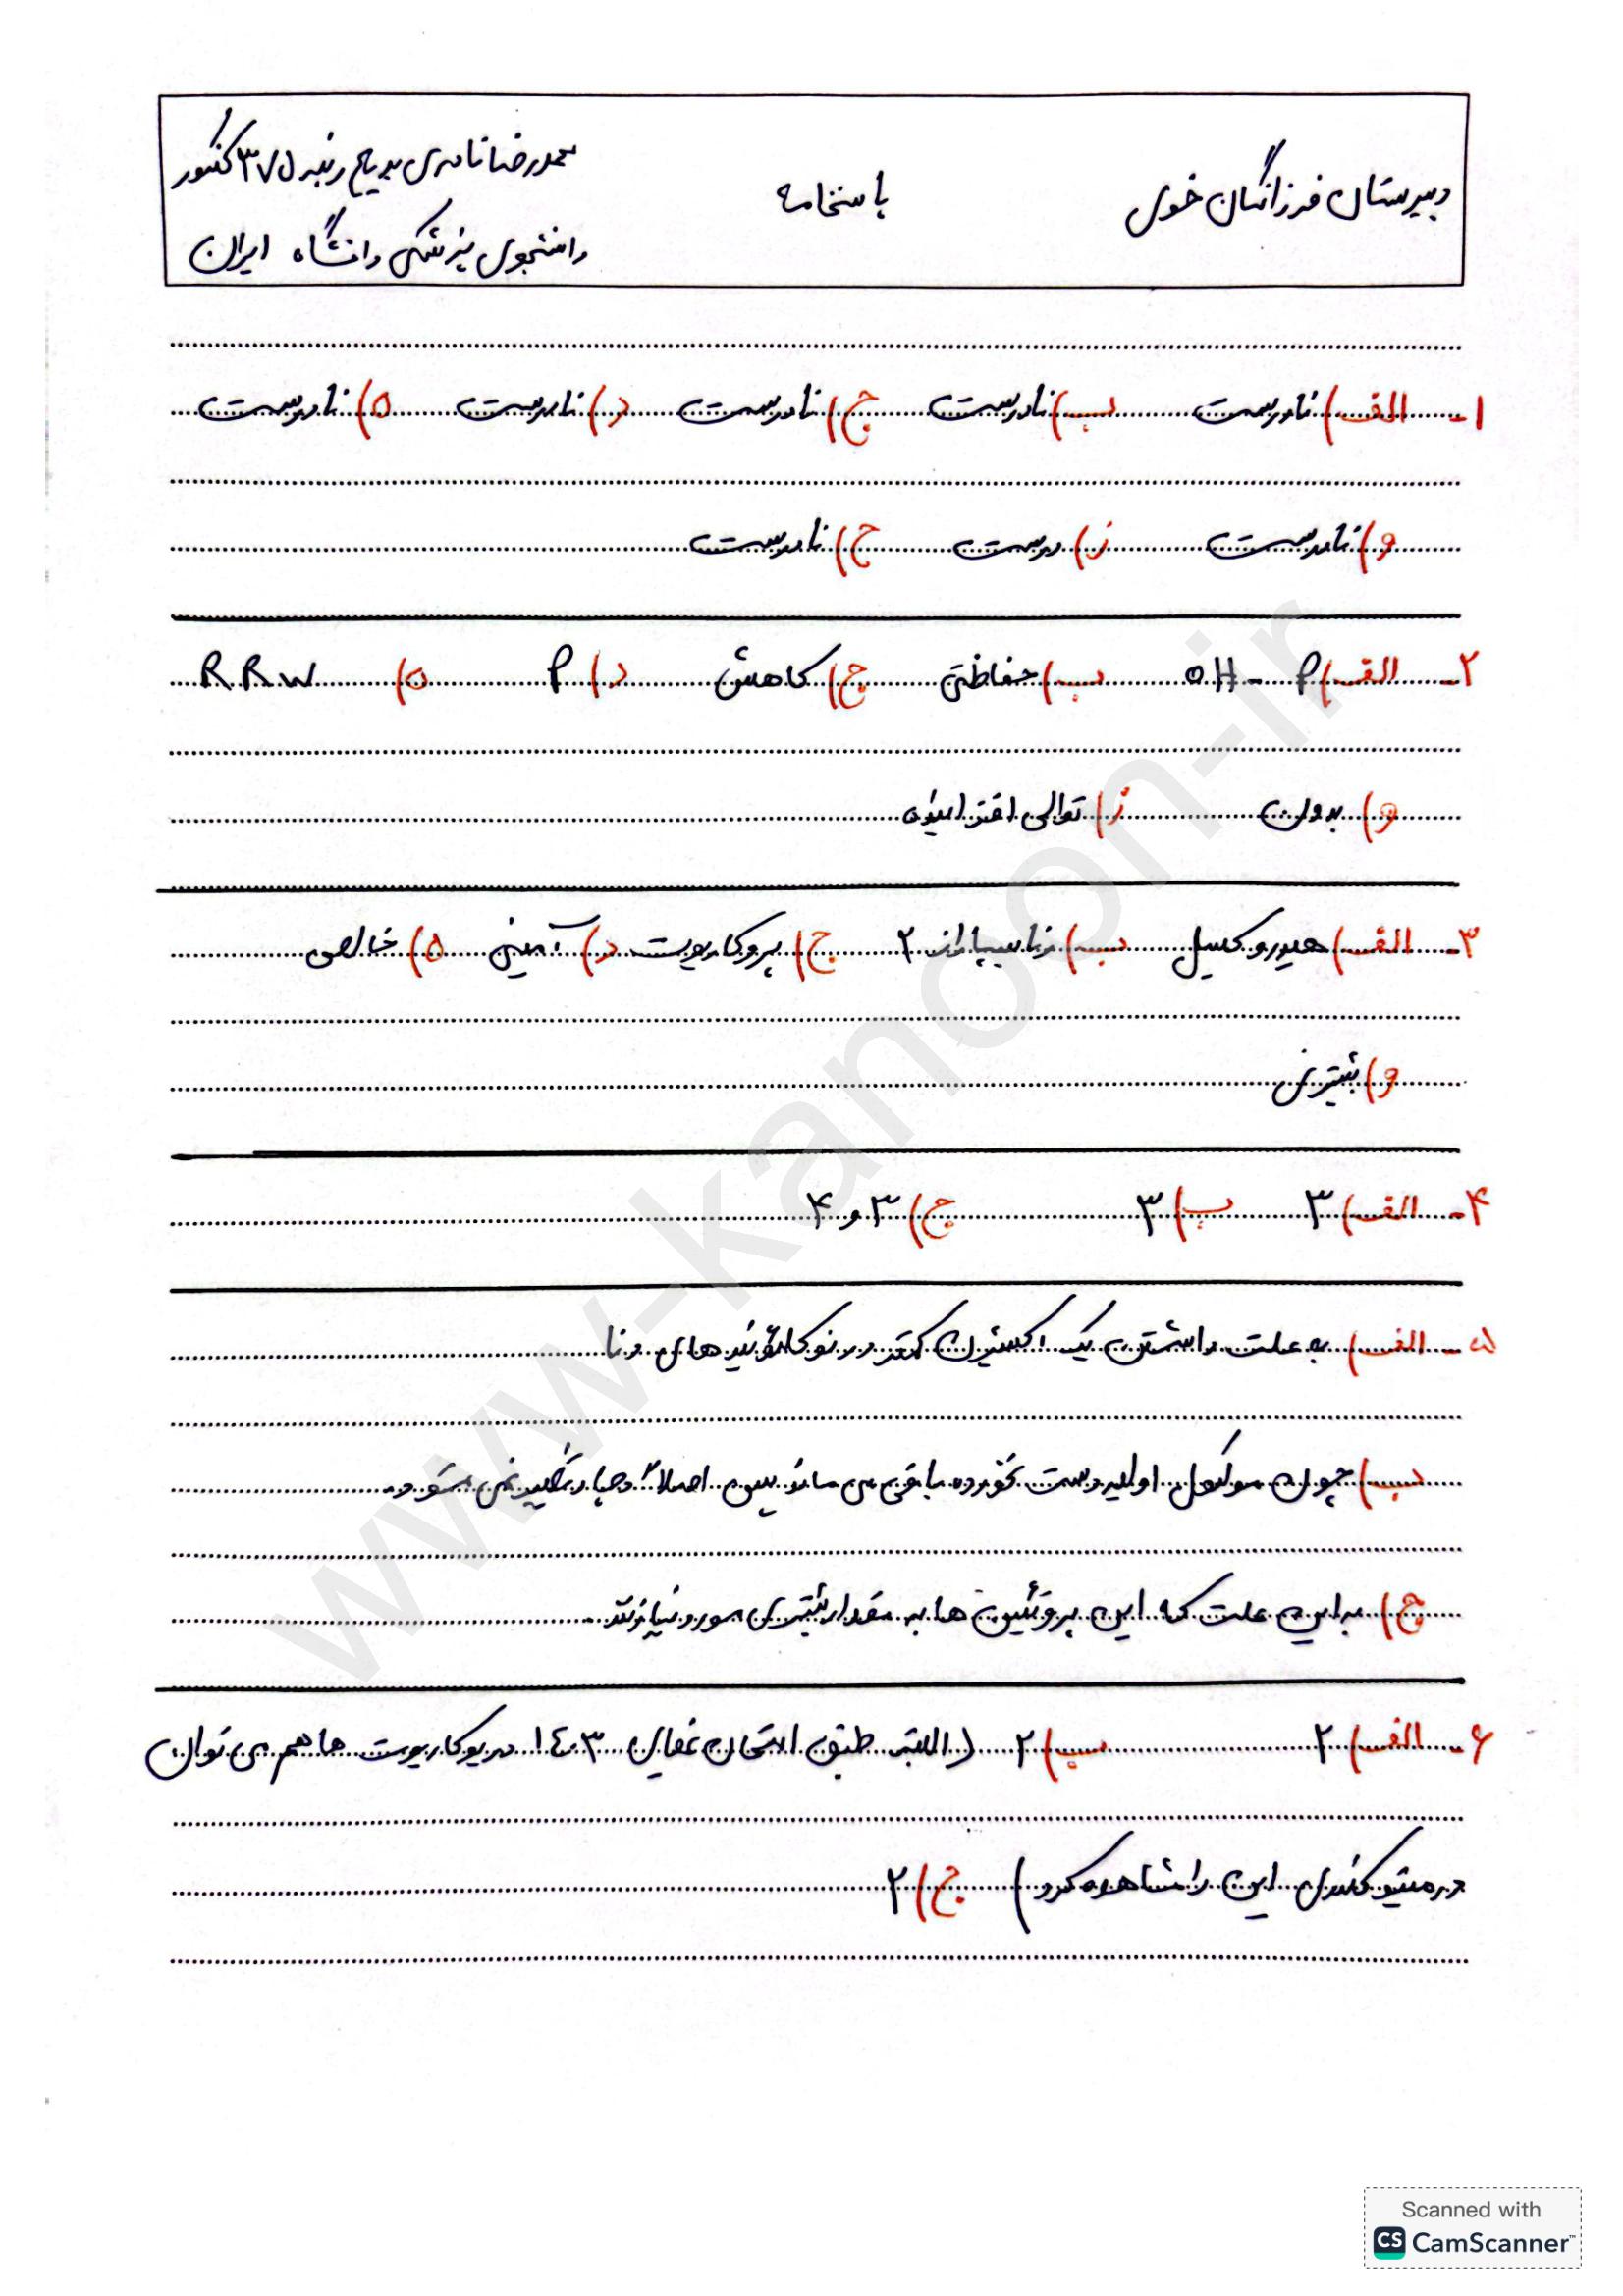 دبیرستان فرزانگان خوی
پاسخنامه
محمدرضا نادری بدیع رتبه ۳۷۵ کنکور
دانشجوی پزشکی دانشگاه ایران
۱- الف) نادرست ب) نادرست ج) نادرست د) نادرست ه) نادرست
و) نادرست ز) درست ح) نادرست
۲- الف) OH - P ب) حفاظتی ج) کاهش د) P ه) RRW
و) بدون ز) توالی افزاینده
۳- الف) هیدروکسیل ب) رنابسپاراز ۲ ج) پروکاریوت د) آمینی ه) خالص
و) بیشتری
۴- الف) ۳ ب) ۳ ج) ۳ و ۴
۵- الف) به علت داشتن یک اکسیژن کمتر در نوکلئوتید های دنا
ب) چون مولکول اولیه دست نخورده باقی می ماند پس اصلاً دچار تغییر نمی شود.
ج) به این علت که این پروتئین ها به مقدار بیشتری مورد نیازند.
۶- الف) ۲ ب) ۲ (البته طبق امتحان نهایی ۱۴۰۳ در یوکاریوت ها هم می توان
در میتوکندری این را مشاهده کرد) ج) ۲
www-kanoon-ir
Scanned with
CS CamScanner